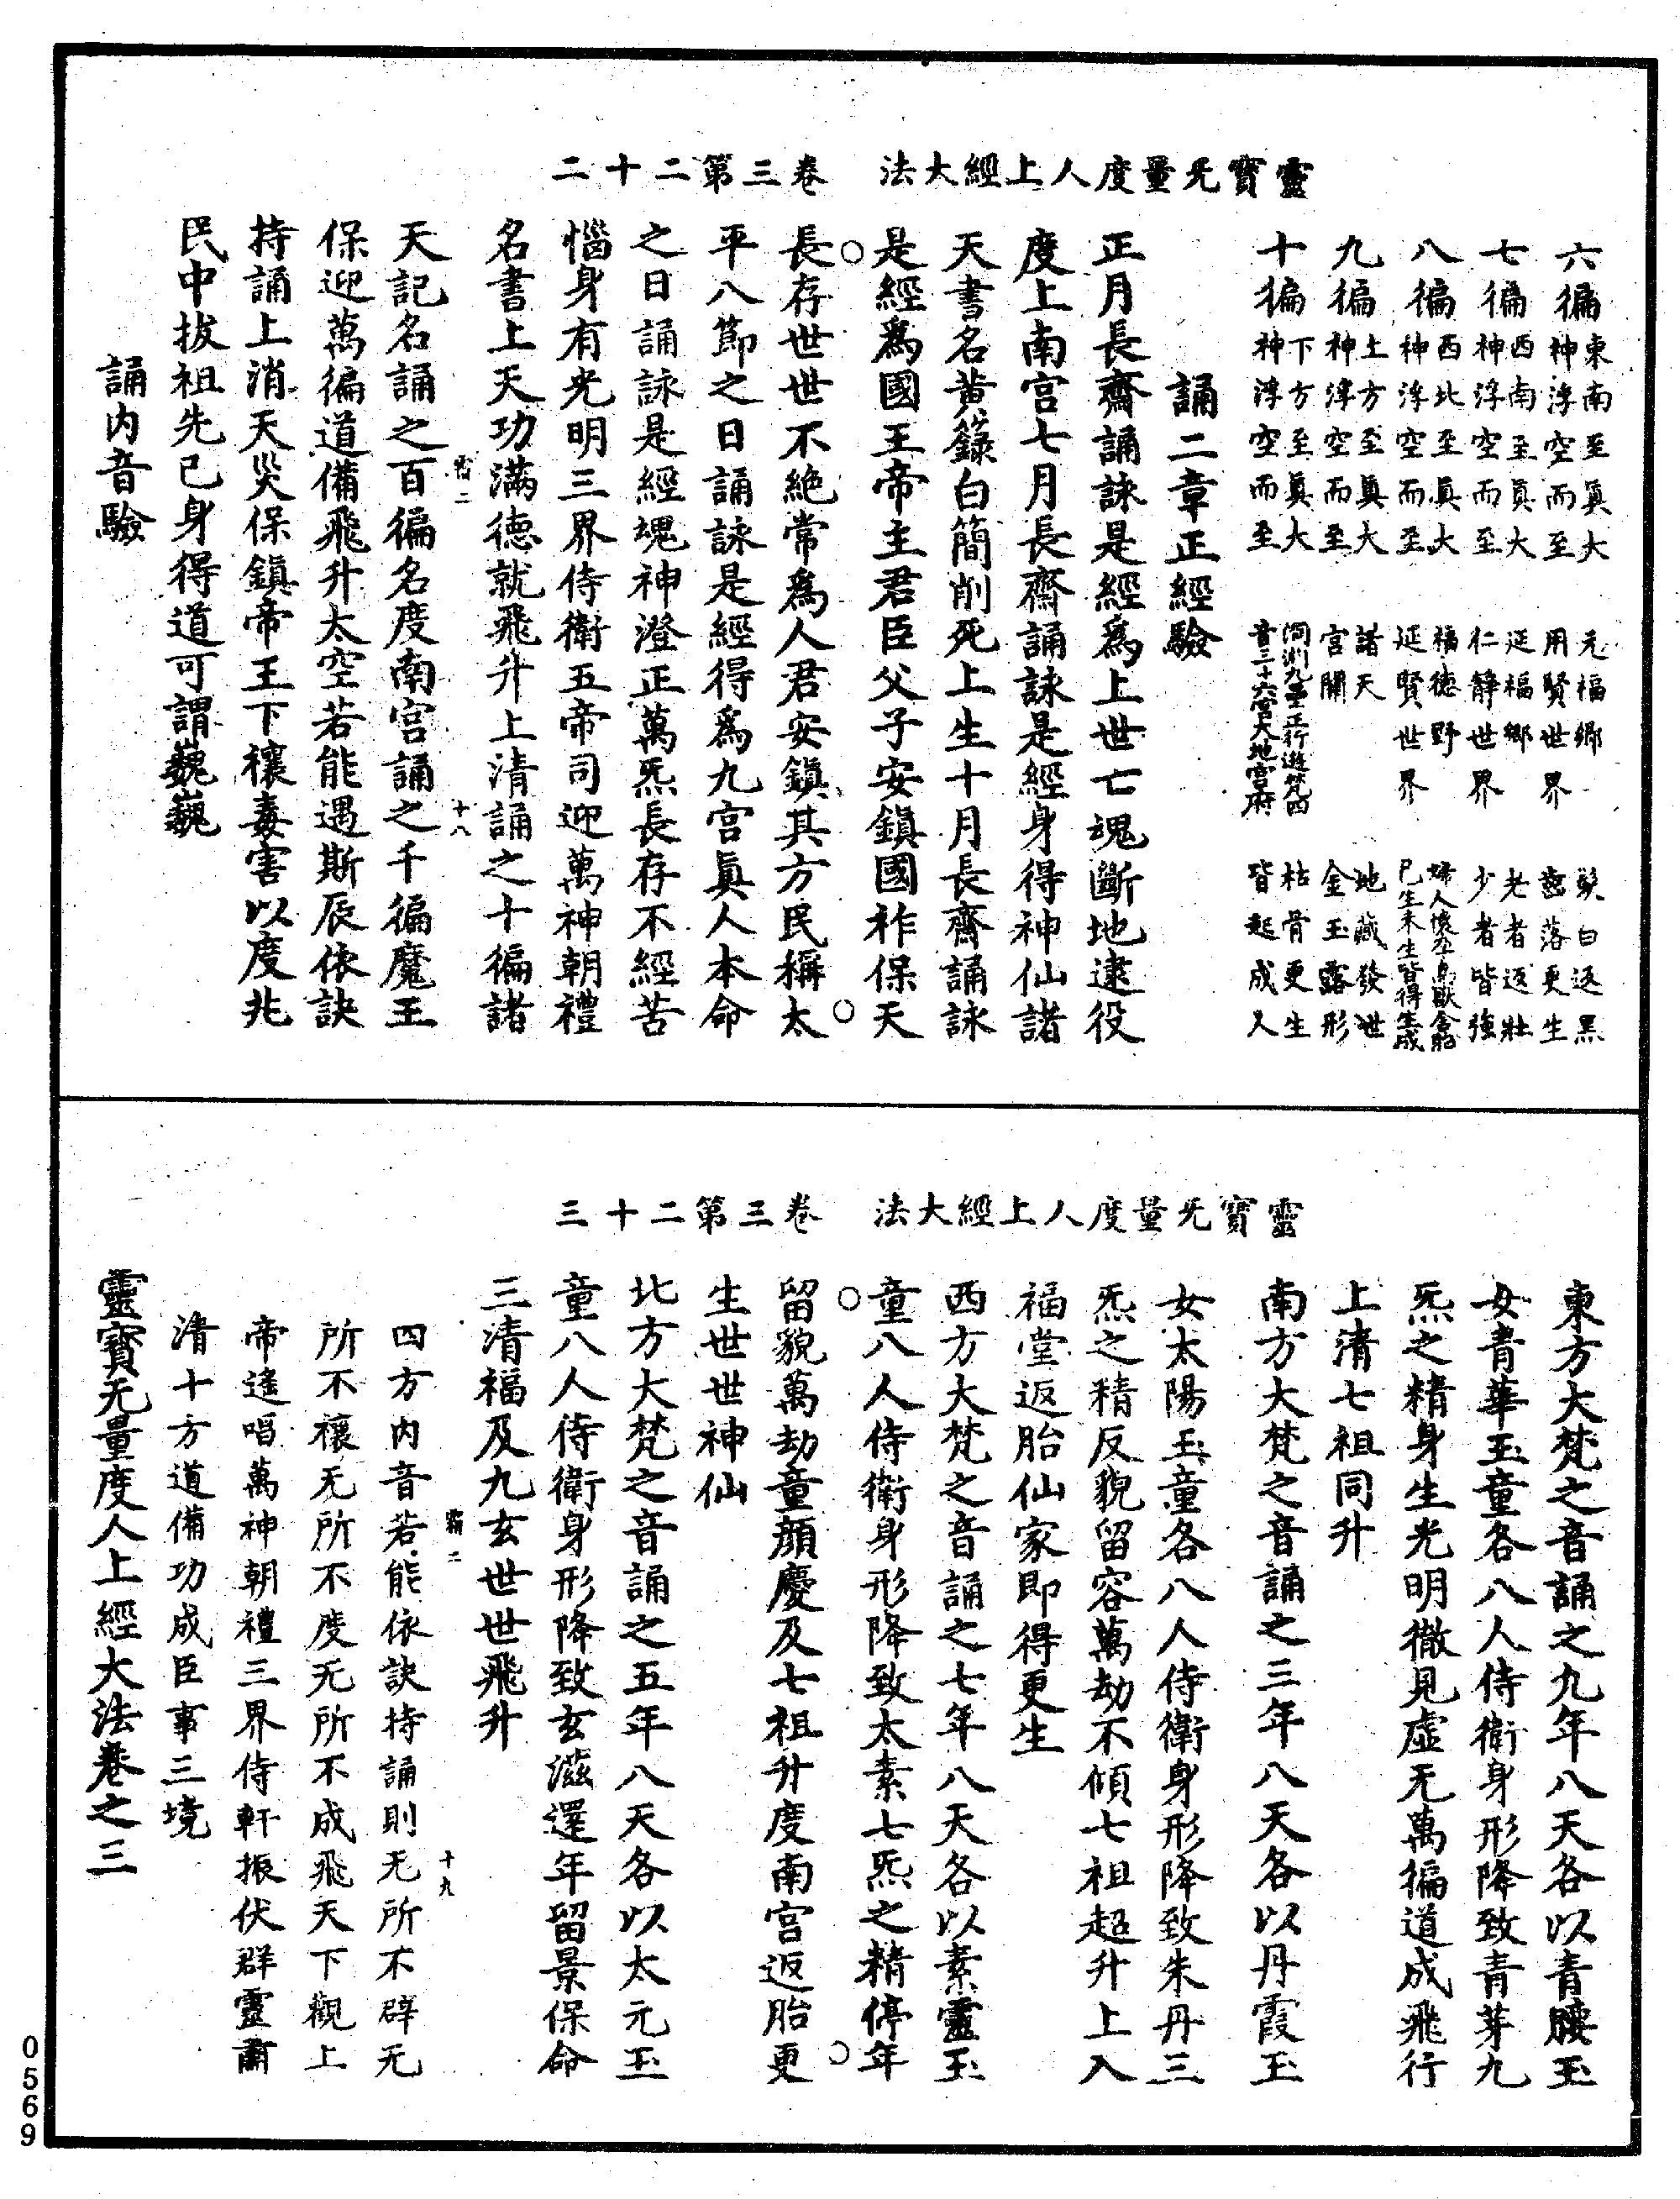 靈寶无量度人上經大法　卷三第二十二
六徧東南至眞大神浮空而至　元福鄉用賢世界　髮白返黑齒落更生
七徧西南至眞大神浮空而至　延福鄉仁靜世界　老者返壯少者皆強
八徧西北至眞大神浮空而至　福德野延賢世界　婦人懷孕鳥獸含胎已生未生皆得生成
九徧上方至眞大神浮空而至　諸天宮開　地藏發泄金玉露形
十徧下方至眞大神浮空而至　洞淵九壘正行遊梵四音三十六宮大地宮府　枯骨更生皆起成人
誦二章正經驗
正月長齋誦詠是經爲上世亡魂斷地逮役
度上南宮七月長齋誦詠是經身得神仙諸
天書名黃籙白簡削死上生十月長齋誦詠
是經爲國王帝主君臣父子安鎭國祚保天
長存世世不絶常爲人君安鎭其方民稱太
平八節之日誦詠是經得爲九宮眞人本命
之日誦詠是經魂神澄正萬炁長存不經苦
惱身有光明三界侍衞五帝司迎萬神朝禮
名書上天功滿德就飛升上清誦之十徧諸
霸二　十八
天記名誦之百徧名度南宮誦之千徧魔王
保迎萬徧道備飛升太空若能遇斯辰依訣
持誦上消天災保鎭帝王下禳毒害以度兆
民中拔祖先已身得道可謂巍巍
誦内音驗
靈寶无量度人上經大法　卷三第二十三
東方大梵之音誦之九年八天各以青腰玉
女青華玉童各八人侍衞身形降致青芽九
炁之精身生光明徹見虛无萬徧道成飛行
上清七祖同升
南方大梵之音誦之三年八天各以丹霞玉
女太陽玉童各八人侍衞身形降致朱丹三
炁之精反貌留容萬劫不傾七祖超升上入
福堂返胎仙家即得更生
西方大梵之音誦之七年八天各以素靈玉
童八人侍衞身形降致太素七炁之精停年
留貌萬劫童顔慶及七祖升度南宮返胎更
生世世神仙
北方大梵之音誦之五年八天各以太元玉
童八人侍衞身形降致玄滋還年留景保命
三清福及九玄世世飛升
霸二　十九
四方内音若能依訣持誦則无所不辟无
所不禳无所不度无所不成飛天下觀上
帝遙唱萬神朝禮三界侍軒振伏群靈肅
清十方道備功成臣事三境
靈寶无量度人上經大法卷之三
0569